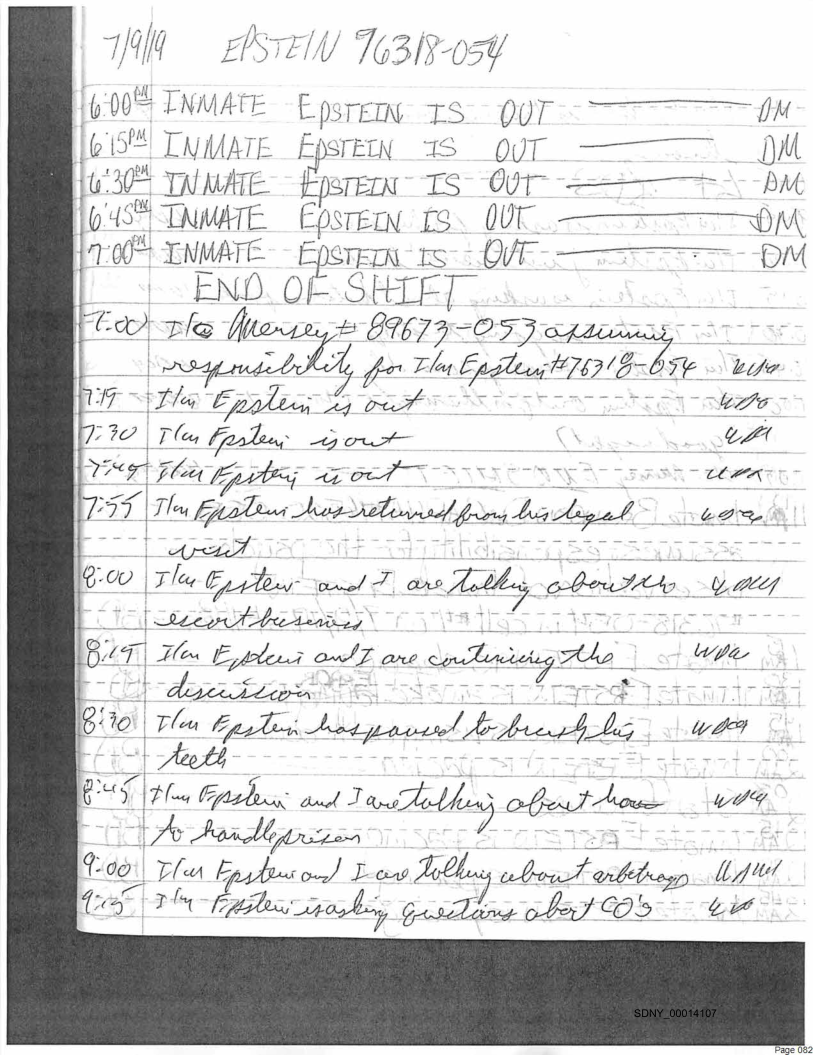 7/9/19 EPSTEIN 76318-054
6:00PM INMATE EPSTEIN IS OUT DM
6:15PM INMATE EPSTEIN IS OUT DM
6:30PM INMATE EPSTEIN IS OUT DM
6:45PM INMATE EPSTEIN IS OUT DM
7:00PM INMATE EPSTEIN IS OUT DM
END OF SHIFT
7:00 # 89673-053 assuming
responsibility for I/m Epstein #76318-054
7:15 I/m Epstein is out
7:30 I/m Epstein is out
7:45 I/m Epstein is out
7:55 I/m Epstein has returned from his legal
visit
8:00 I/m Epstein and I are talking about the
escort business
8:15 I/m Epstein and I are continuing the
discussion
8:30 I/m Epstein has paused to brush his
teeth
8:45 I/m Epstein and I are talking about how
to handle prison
9:00 I/m Epstein and I are talking about arbitrage
9:15 I/m Epstein is asking questions abert CO's
SDNY_00014107
Page 082